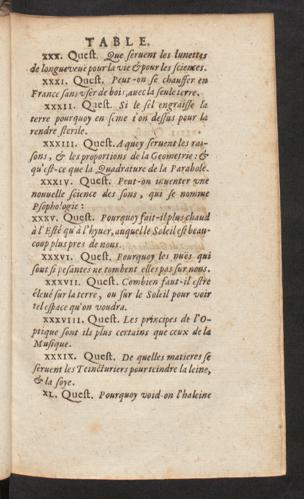 TABLE.
XXX. Quest. Que seruent les lunettes
de longue veuë pour la vie & pour les sciences.
XXXI. Quest. Peut-on se chauffer en
France sans vser de bois, auec la seule terre.
XXXII. Quest. Si le sel engraisse la
terre pourquoy en seme t'on dessus pour la
rendre sterile.
XXXIII. Quest. A quoy seruent les rai-
sons, & les proportions de la Geometrie: &
qu'est-ce que la Quadrature de la Parabole.
XXXIV. Quest. Peut-on inuenter vne
nouuelle science des sons, qui se nomme
Psophologie:
XXXV. Quest. Pourquoy fait-il plus chaud
à l'Esté qu'à l'hyuer, auquel le Soleil est beau-
coup plus pres de nous.
XXXVI. Quest. Pourquoy les nuës qui
sont si pesantes ne tombent elles pas sur nous.
XXXVII. Quest. Combien faut-il estre
éleué sur la terre, ou sur le Soleil pour voir
tel espace qu'on voudra.
XXXVIII. Quest. Les principes de l'O-
ptique sont ils plus certains que ceux de la
Musique.
XXXIX. Quest. De quelles matieres se
seruent les Teincturiers pour teindre la leine,
& la soye.
XL. Quest. Pourquoy void-on l'haleine